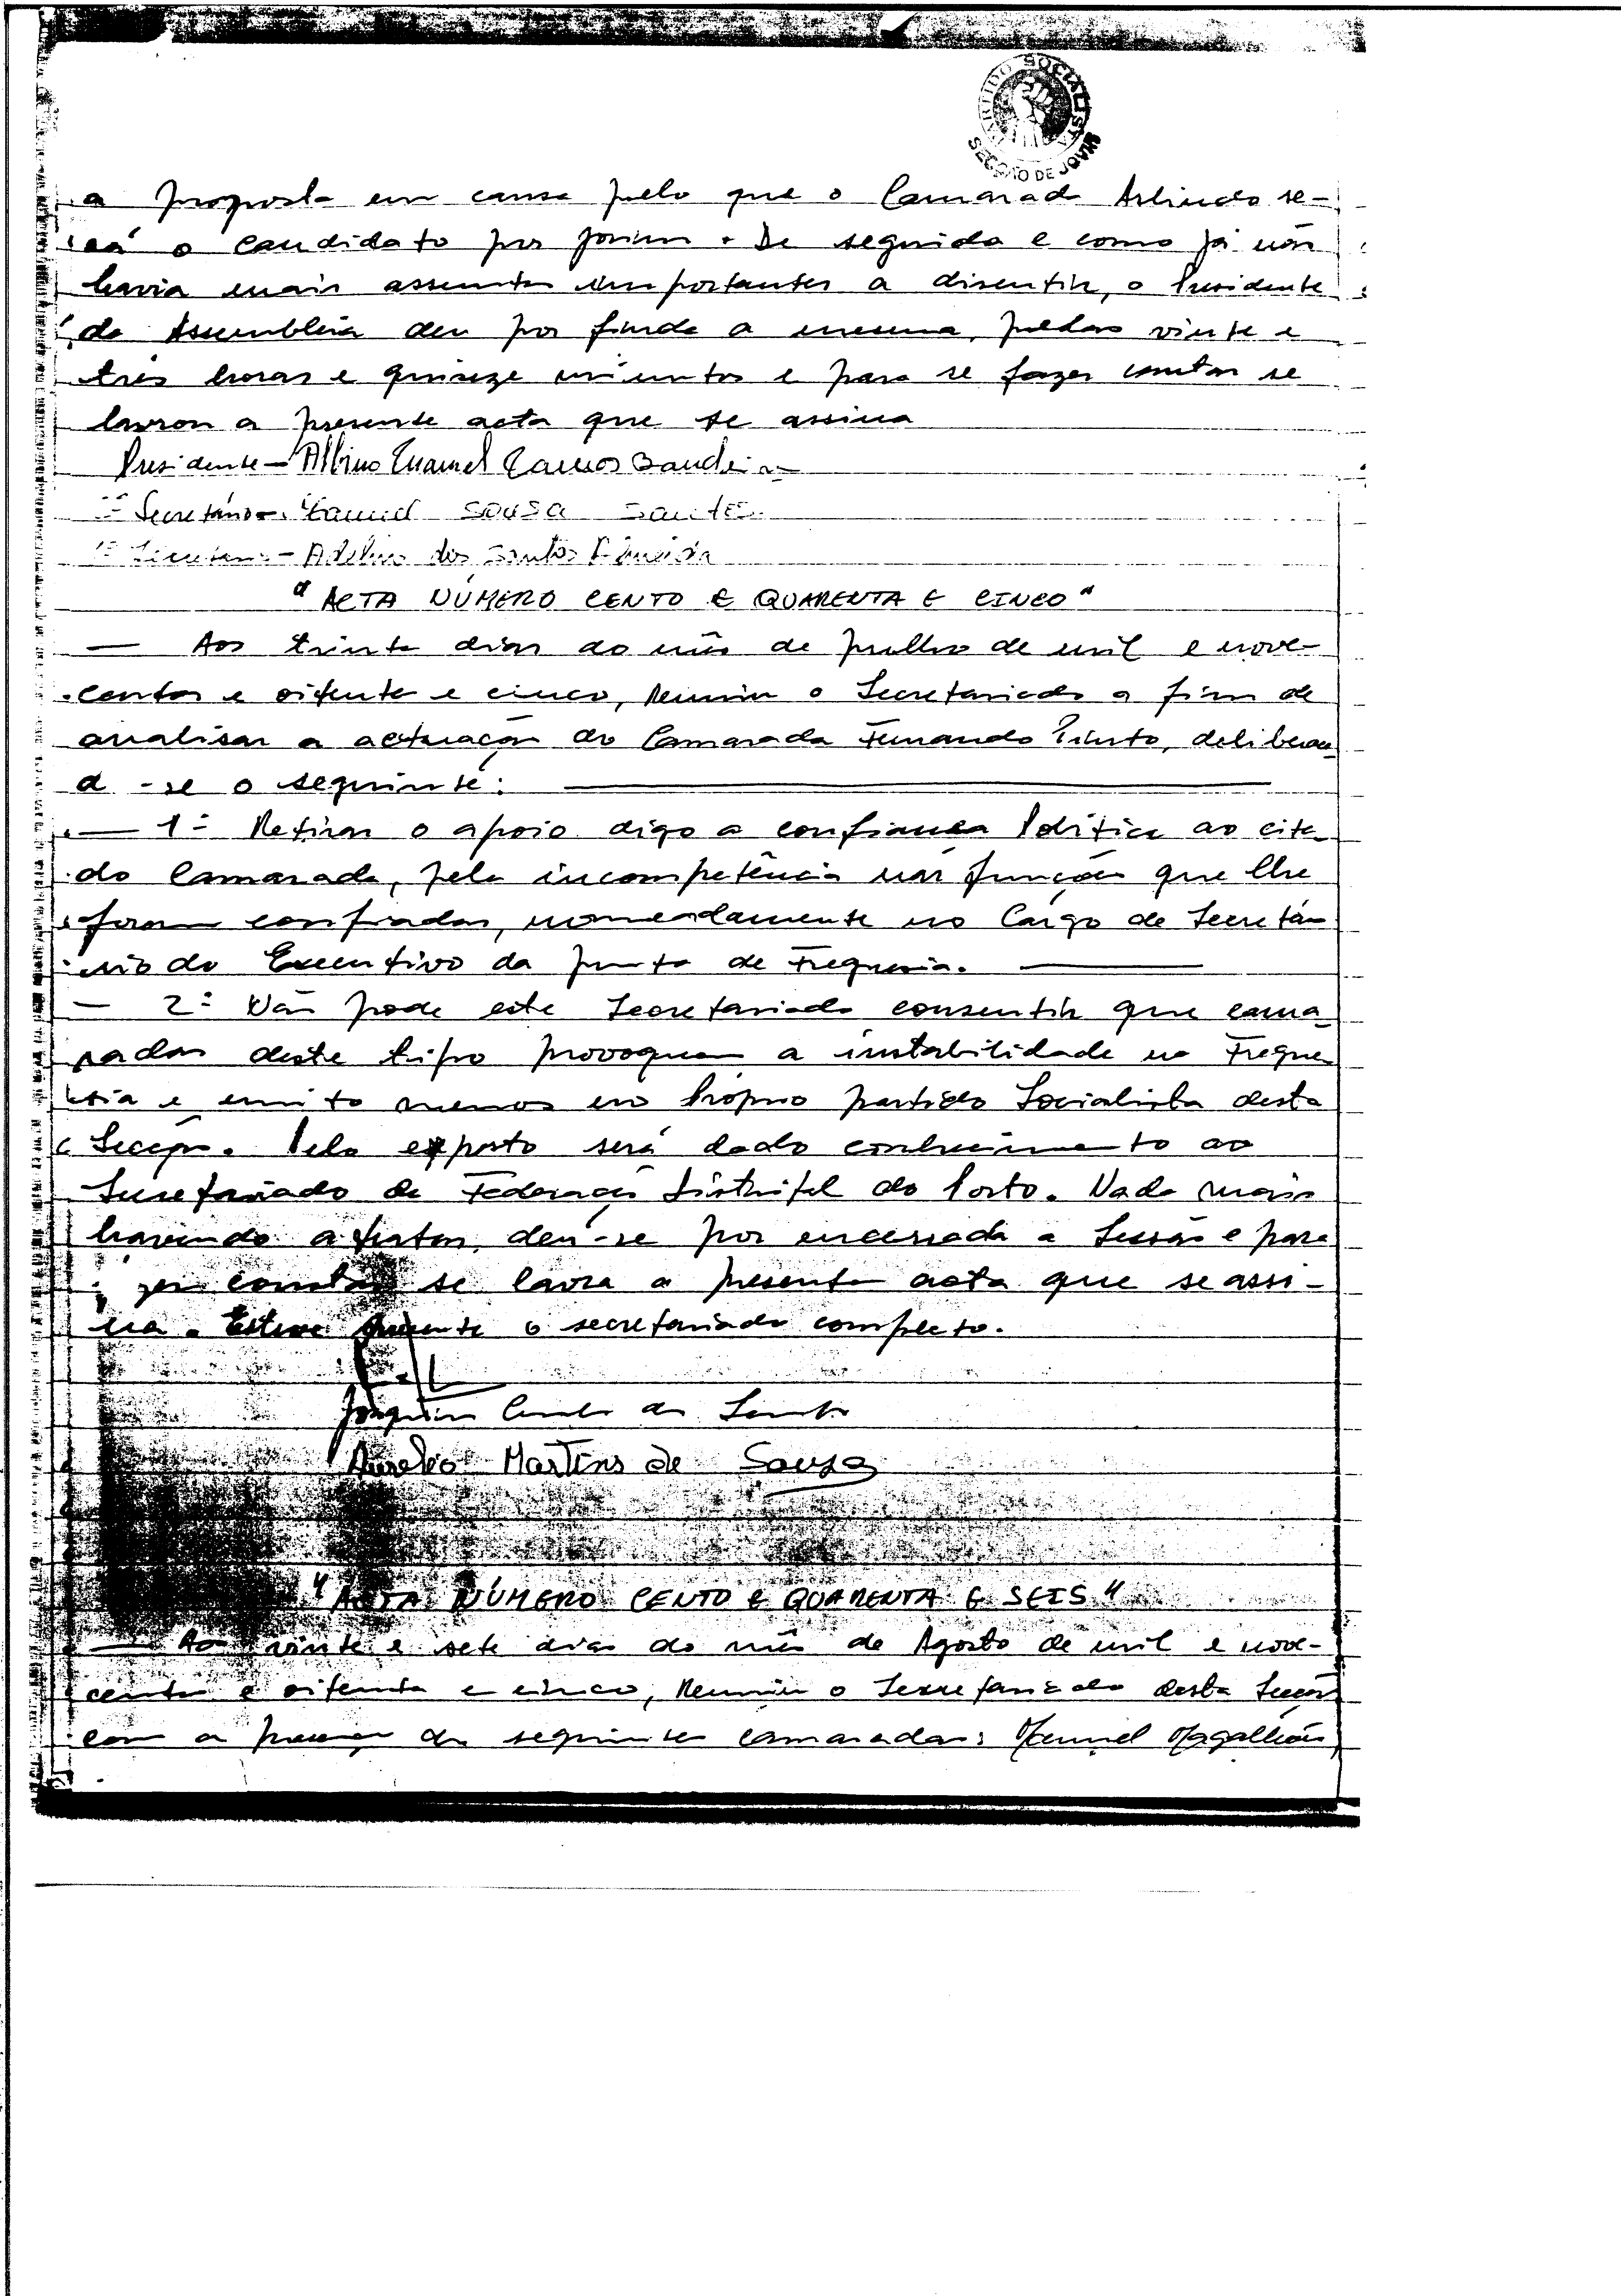 PARTIDO SOCIALISTA
SECÇÃO DE JOVIM
a proposta em causa pelo que o Camarada Arlindo se-
rá o candidato por Jovim. De seguida e como já não
havia mais assuntos importantes a discutir, o Presidente
da Assembleia deu por finda a mesma, pelas vinte e
três horas e quinze minutos e para se fazer constar se
lavrou a presente acta que se assina
Presidente - Albino Manuel Ramos Bandeira
Secretário - Manuel Sousa Santos
Adelino dos Santos Almeida
"ACTA NÚMERO CENTO E QUARENTA E CINCO"
— Aos trinta dias do mês de Julho de mil e nove-
centos e oitenta e cinco, Reuniu o Secretariado a fim de
analisar a actuação do Camarada Fernando Pinto, deliberan
d -se o seguinte:
— 1º Retirar o apoio digo a confiança Política ao cita
do Camarada, pela incompetência nas funções que lhe
foram confiadas, nomeadamente no Cargo de Secretá
rio do Executivo da Junta de Freguesia.
— 2º Não pode este Secretariado consentir que cama
radas deste tipo provoquem a instabilidade na Fregue
sia e muito menos no Próprio partido Socialista desta
Secção. Pelo exposto será dado conhecimento ao
Secretariado da Federação Distrital do Porto. Nada mais
havendo a tratar, deu-se por encerrada a Sessão e para
constar se lavra a presente acta que se assi-
na. Esteve presente o secretariado completo.
Joaquim dos Santos
Aurelio Martins de Sousa
"ACTA NÚMERO CENTO E QUARENTA E SEIS"
— Aos vinte e sete dias do mês de Agosto de mil e nove-
centos e oitenta e cinco, Reuniu o Secretariado desta Secção
com a presença dos seguintes camaradas: Manuel Magalhães